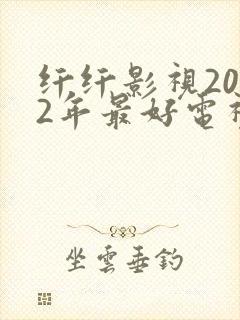 纤纤影視20
2年最好電視
坐雲垂釣